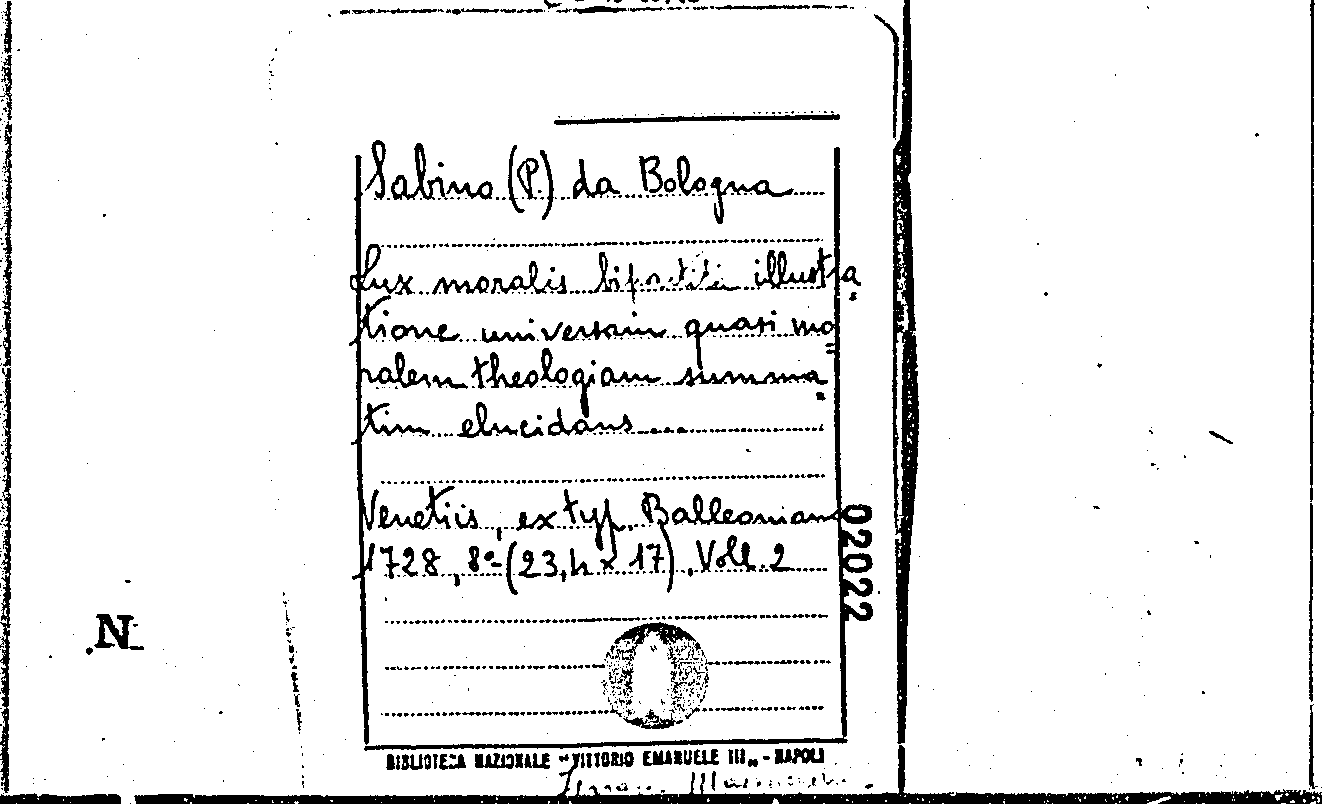 Sabino (P.) da Bologna
Lux moralis bipartita illustra=
tione universam quasi mo=
ralem theologiam summa=
tim elucidans ...
Venetiis, ex typ. Balleonian
1728, 8º- (23,h x 17), Voll. 2
02022
.N_
BIBLIOTECA NAZIONALE "VITTORIO EMANUELE III„ - NAPOLI